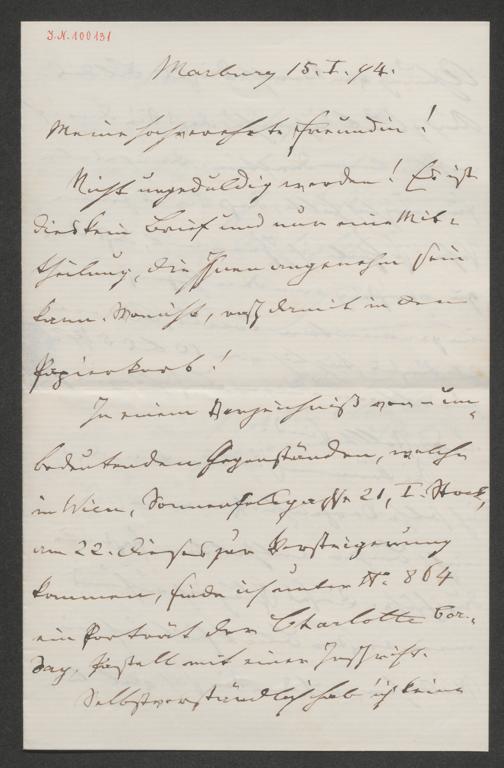 J.N. 100131
Marburg 15. I. 94.
Meine hochverehrte Freundin!
Nicht ungeduldig werden! Es ist
dies kein Brief und nur eine Mit-
theilung, die Ihnen angenehm sein
kann. Wo nicht, rasch damit in den
Papierkorb!
In einem Verzeichniß von un-
bedeutenden Gegenständen, welche
in Wien, Sonnenfelsgasse 21, I. Stock,
am 22. dieses zur Versteigerung
kommen, finde ich unter N: 864
ein Porträt der Charlotte Cor-
day, Pastell mit einer Inschrift.
Selbstverständlich hab' ich keine